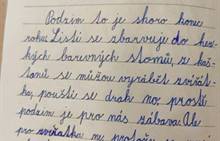 Podzim to je skoro konec
roku. Listí se zbarvuje do hez-
kých barevných stomů, ze kaš-
tanů se můžou vyrábět zvířát-
ka, pouští se drak no prostě
podzim je pro nás zábava. Ale
pro zvířátka ne, protože se